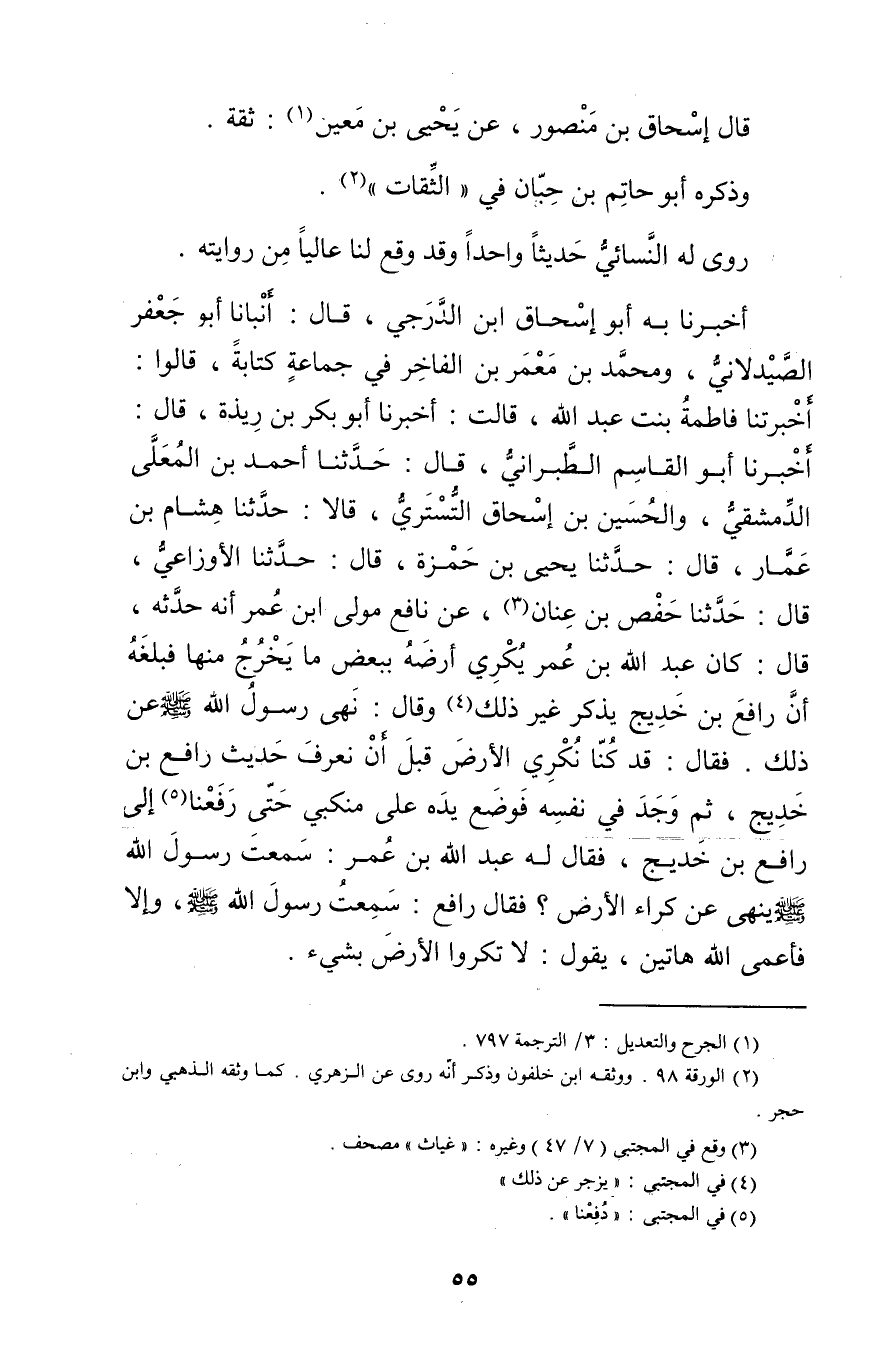 قال إسْحاق بن مَنْصور ، عن يَحْيى بن مَعين(١) : ثقة .
وذكره أبو حاتِم بن حِبّان في « الثِّقات »(٢) .
روى له النَّسائيُّ حَديثاً واحداً وقد وقع لنا عالياً مِن روايته .
أخبـرنا بـه أبو إسْحـاق ابن الدَّرَجي ، قـال : أَنْبانا أبو جَعْفر
الصَّيْدلانيُّ ، ومحمَّد بن مَعْمَر بن الفاخِر في جماعةٍ كتابةً ، قالوا :
أَخْبرتنا فاطمةُ بنت عبد الله ، قالت : أخبرنا أبو بكر بن رِيذة ، قال :
أَخْبـرنا أبـو القـاسِم الطَّبـرانيُّ ، قـال : حَـدَّثنـا أحمـد بن المُعَلَّى
الدِّمشقيُّ ، والحُسَين بن إسْحاق التُّسْتَريُّ ، قالا : حدَّثنا هِشـام بن
عَمَّـار ، قال : حـدَّثنا يحيى بن حَمْـزة ، قال : حـدَّثنا الأوزاعيُّ ،
قال : حَدَّثنا حَفْص بن عِنان(٣) ، عن نافع مولى ابن عُمر أنه حدَّثه ،
قال : كان عبد الله بن عُمر يُكْري أرضَهُ ببعض ما يَخْرُجُ منها فبلغَهُ
أنَّ رافعَ بن خَديج يذكر غير ذلك(٤) وقال : نَهى رسـولُ الله ﷺ عن
ذلك . فقال : قد كُنّا نُكْرِي الأرضَ قبلَ أَنْ نعرفَ حَديث رافـع بن
خَدِيج ، ثم وَجَدَ في نفسِه فَوضَع يدَه على منكبي حَتّى رَفَعْنا(٥) إلى
رافـع بن خَديـج ، فقال لـه عبد الله بن عُمـر : سَمعتَ رسـولَ الله
ﷺ ينهى عن كراء الأرض ؟ فقال رافع : سَمِعتُ رسولَ الله ﷺ ، وإلا
فأعمى الله هاتين ، يقول : لا تكروا الأرضَ بشيء .
(١) الجرح والتعديل : ٣/ الترجمة ٧٩٧ .
(٢) الورقة ٩٨ . ووثقـه ابن خلفون وذكـر أنّه روى عن الـزهري . كمـا وثقه الـذهبي وابن
حجر .
(٣) وقع في المجتبى ( ٧/ ٤٧ ) وغيره : « غياث » مصحف .
(٤) في المجتبى : « يزجر عن ذلك »
(٥) في المجتبى : « دُفِعْنا » .
٥٥